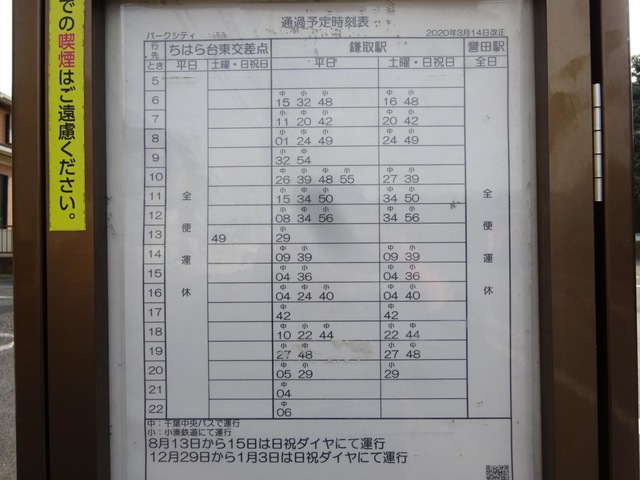 での喫煙はご遠慮ください。
通過予定時刻表
パークシティ 2020年3月14日改正
行先 ちはら台東交差点 鎌取駅 誉田駅
とき 平日 土曜・日祝日 平日 土曜・日祝日 全日
全便運休
全便運休
5
中 小 小 中 小
6 15 32 48 16 48
中 小 中 小 中
7 11 20 42 20 42
8 01 24 49 24 49
小 中
9 32 54
10 26 39 48 55 27 39
11 15 34 50 34 50
12 08 34 56 34 56
小
13 49 29
中 小 中 小
14 09 39 09 39
15 04 36 04 36
16 04 24 40 04 40
17 42 42
18 10 22 44 22 44
小 中 小 中
19 27 48 27 48
20 05 29 29
21 04
中
22 06
中：千葉中央バスで運行
小：小湊鉄道にて運行
8月13日から15日は日祝ダイヤにて運行
12月29日から1月3日は日祝ダイヤにて運行